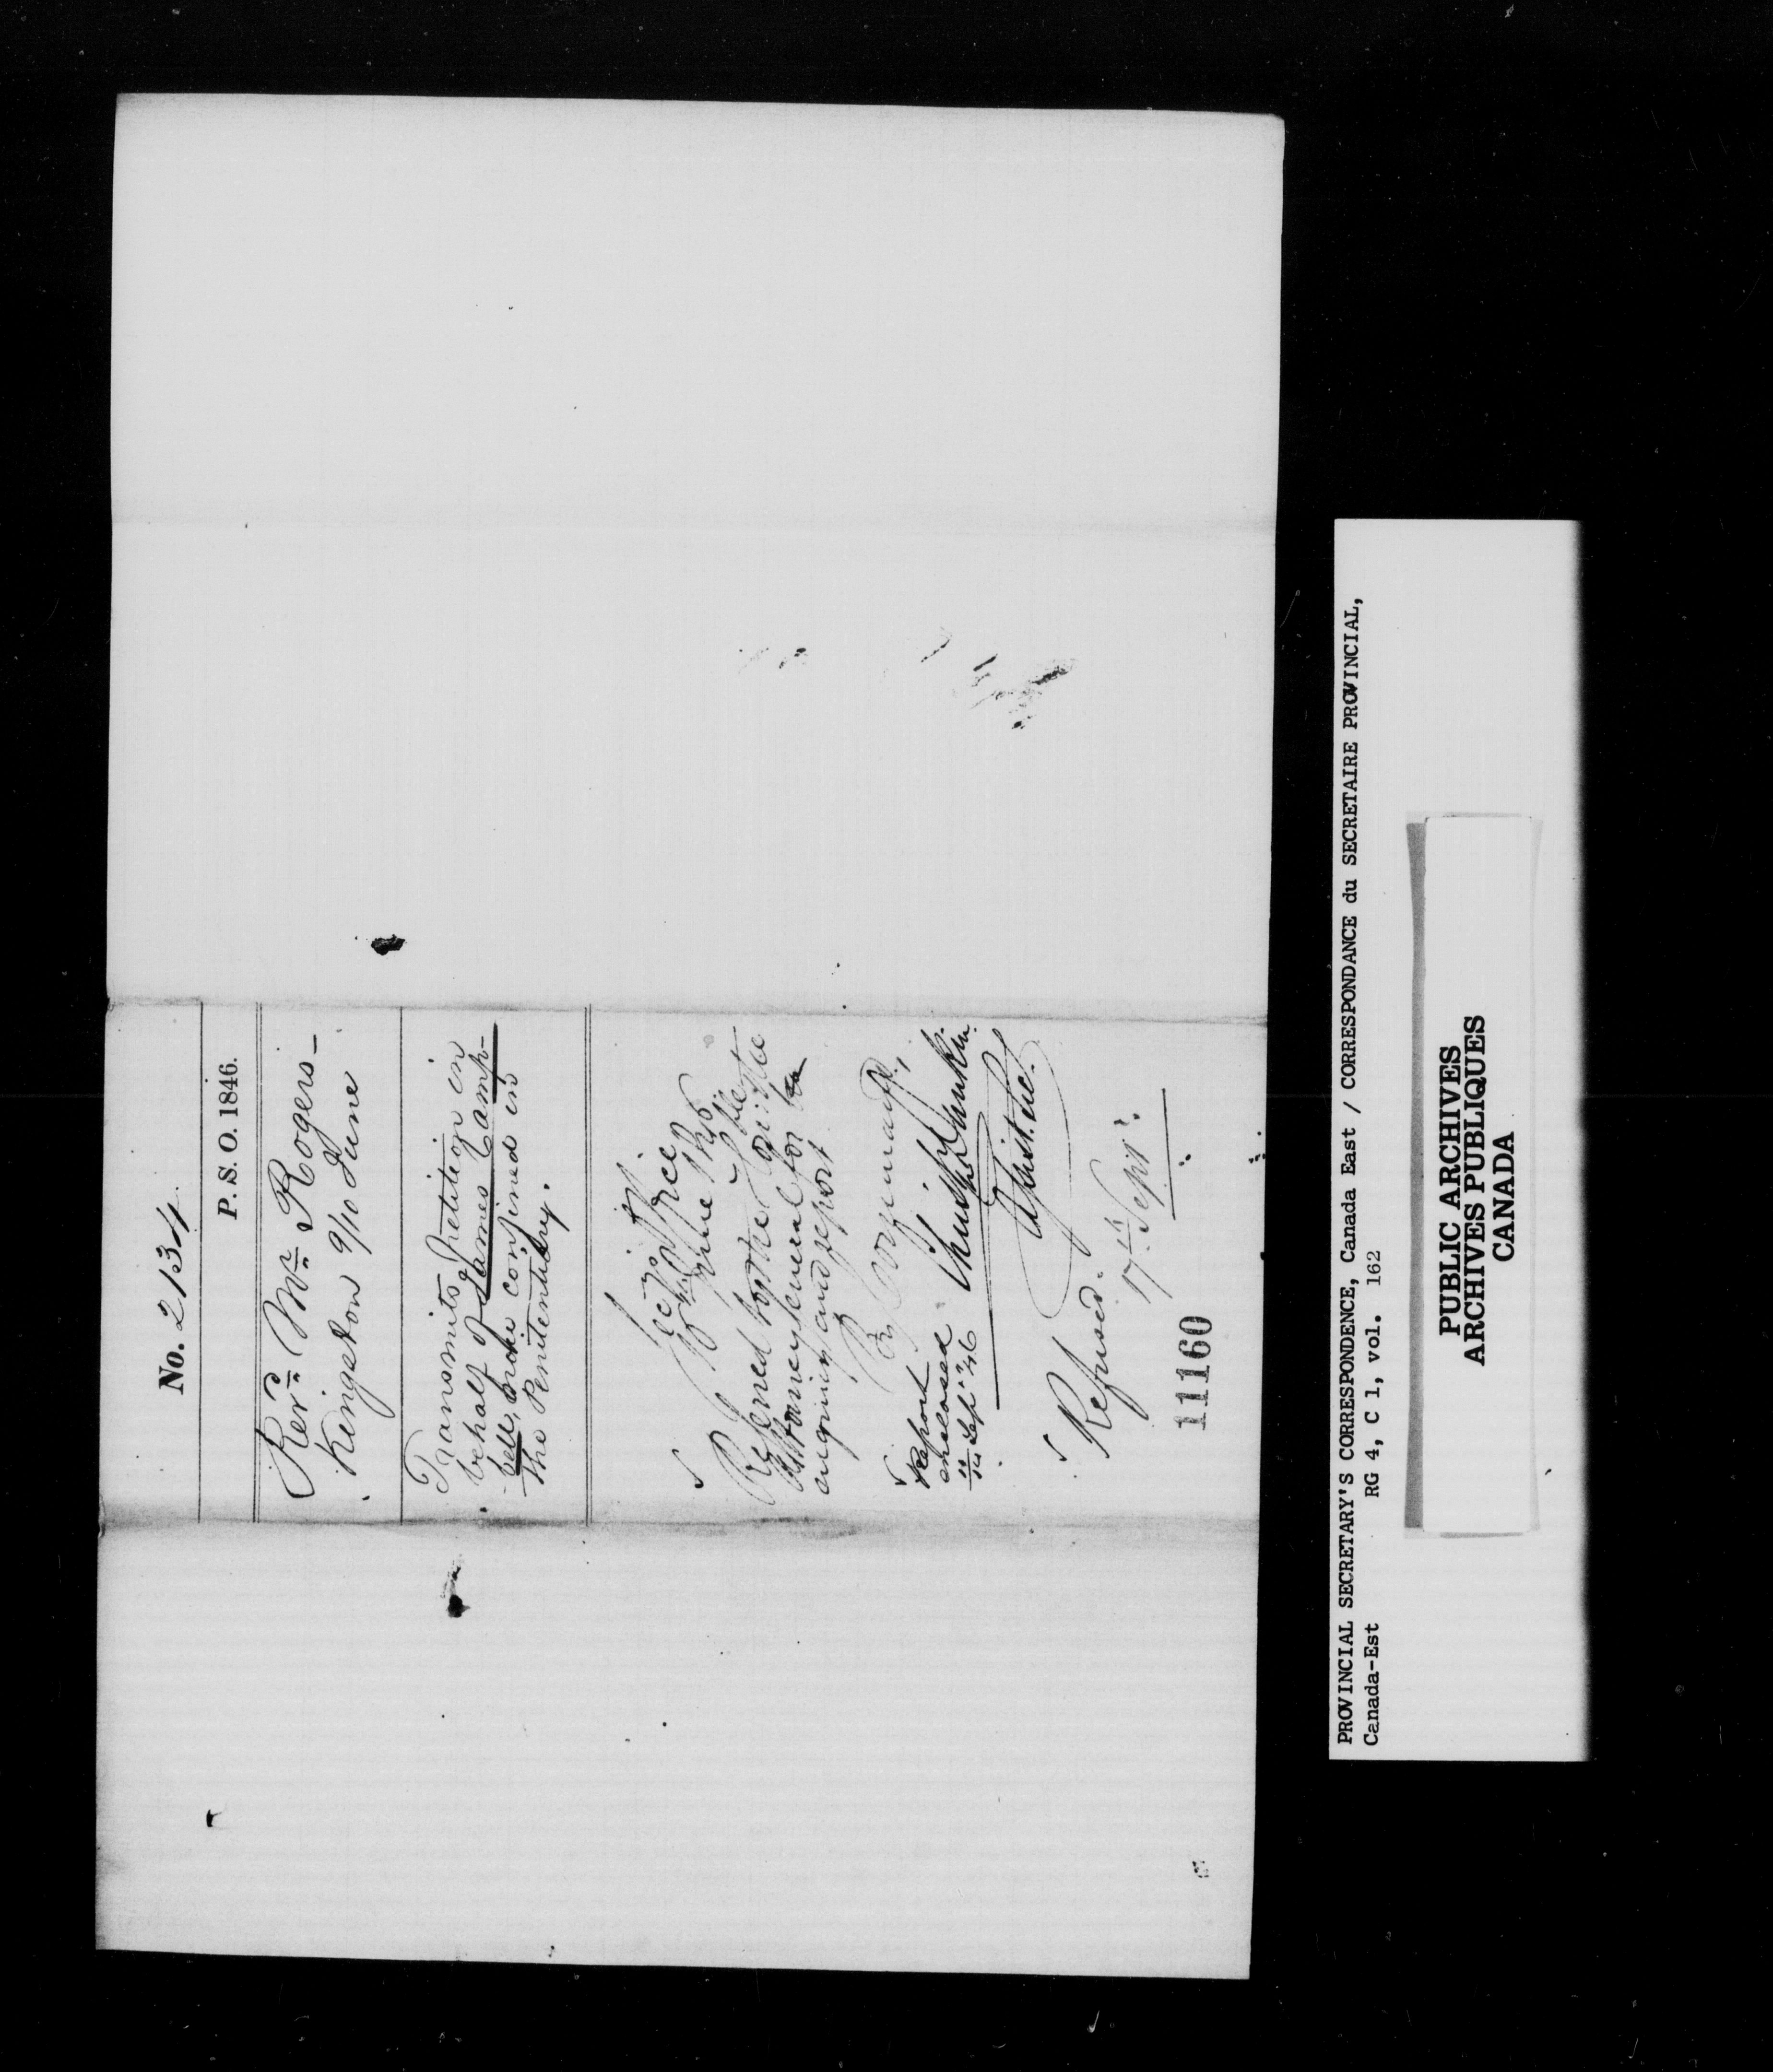 No. 2134
P. S. O. 1846.
Revd. Mr. Rogers—
Kingston 9/10 June
Transmits petition in
behalf of James Camp-
bell, now confined in
the Penitentiary.
Secys Office
June 1846
Refered to the Honble the
Attorney General for
enquiry and report
By Command,
Christr Dunkin
Assist. Sec.
Report
enclosed
Sepr. 46
Refused.
17th Septr.
11160
PROVINCIAL SECRETARY'S CORRESPONDENCE, Canada East / CORRESPONDANCE du SECRETAIRE PROVINCIAL,
Canada-Est RG 4, C 1, vol. 162
PUBLIC ARCHIVES
ARCHIVES PUBLIQUES
CANADA